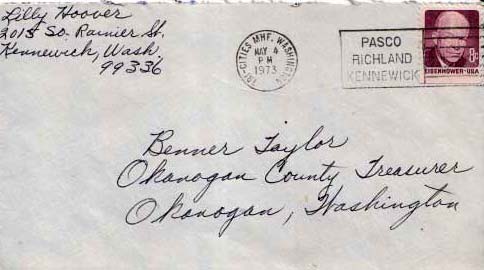 Lilly Hoover
2015 So. Rainier St.
Kennewick, Wash
99336
TRI-CITIES MHF. WASHINGTON
MAY 4
PM
1973
PASCO
RICHLAND
KENNEWICK
EISENHOWER·USA
8¢
Benner Taylor
Okanogan County Treasurer
Okanogan, Washington